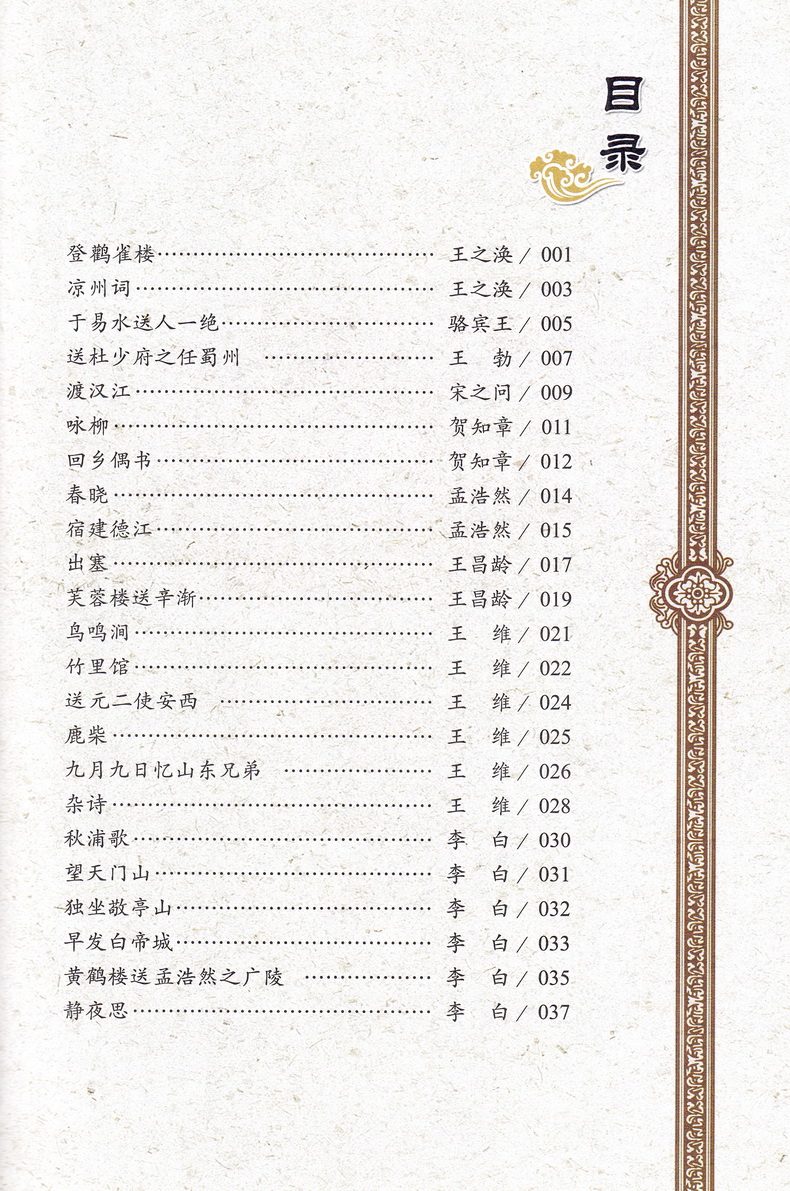 目录
登鹳雀楼………………………… 王之涣 / 001
凉州词………………………… 王之涣 / 003
于易水送人一绝………………………… 骆宾王 / 005
送杜少府之任蜀州 ………………………… 王 勃 / 007
渡汉江………………………… 宋之问 / 009
咏柳………………………… 贺知章 / 011
回乡偶书………………………… 贺知章 / 012
春晓………………………… 孟浩然 / 014
宿建德江………………………… 孟浩然 / 015
出塞………………………… 王昌龄 / 017
芙蓉楼送辛渐………………………… 王昌龄 / 019
鸟鸣涧………………………… 王 维 / 021
竹里馆………………………… 王 维 / 022
送元二使安西 ………………………… 王 维 / 024
鹿柴………………………… 王 维 / 025
九月九日忆山东兄弟 ………………………… 王 维 / 026
杂诗………………………… 王 维 / 028
秋浦歌………………………… 李 白 / 030
望天门山………………………… 李 白 / 031
独坐敬亭山………………………… 李 白 / 032
早发白帝城………………………… 李 白 / 033
黄鹤楼送孟浩然之广陵 ………………………… 李 白 / 035
静夜思………………………… 李 白 / 037